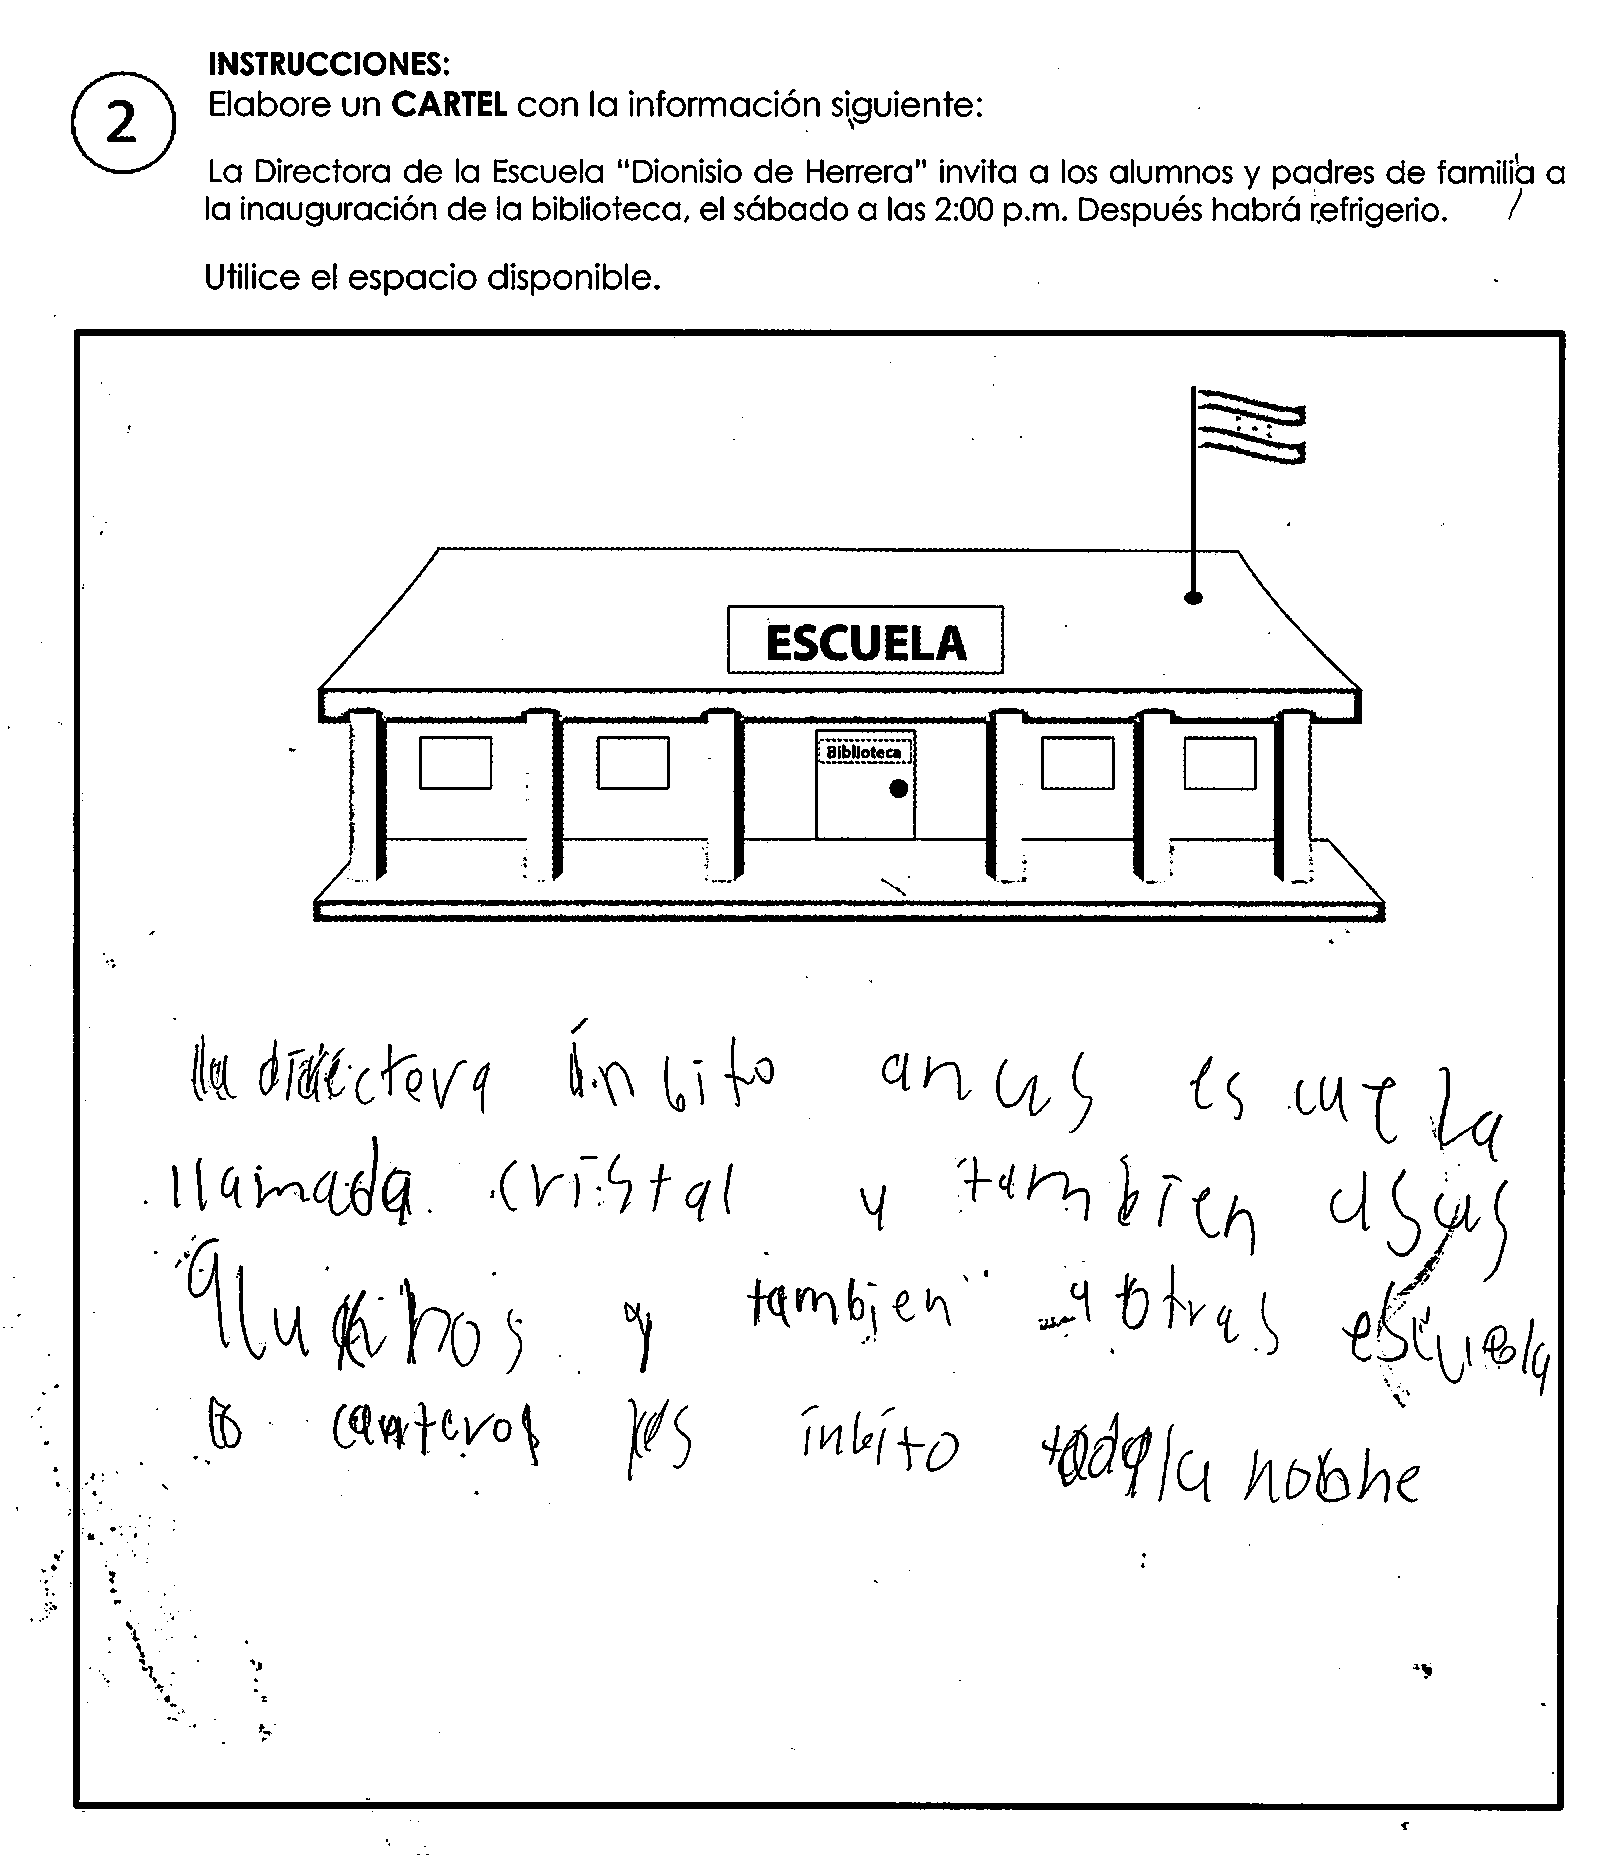 INSTRUCCIONES:
2
Elabore un CARTEL con la información siguiente:
La Directora de la Escuela "Dionisio de Herrera" invita a los alumnos y padres de familia a
la inauguración de la biblioteca, el sábado a las 2:00 p.m. Después habrá refrigerio.
Utilice el espacio disponible.
ESCUELA
Biblioteca
la directora inbito anus escuela
llamada cristal y tambien asus
y tambien a otras escuela
inbito toda la nobhe